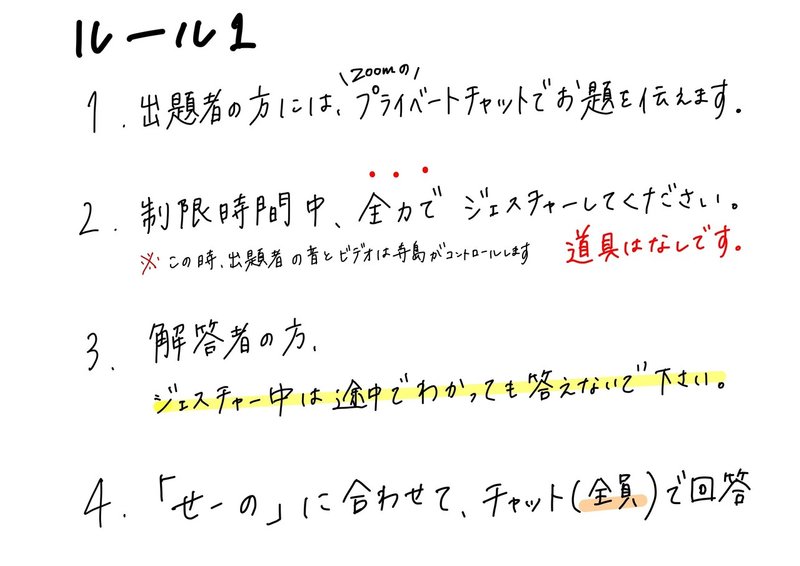 ルール1
\Zoomの/
1. 出題者の方には、プライベートチャットでお題を伝えます。
2. 制限時間中、全力で ジェスチャーしてください。
※ この時、出題者の音とビデオは寺島がコントロールします
道具はなしです。
3. 解答者の方、
ジェスチャー中は途中でわかっても答えないで下さい。
4. 「せーの」に合わせて、チャット(全員)で回答